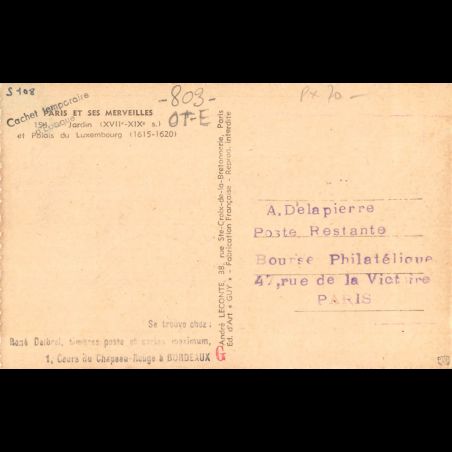 S 108
-809-
OT-E
Px 70 -
Cachet temporaire
PARIS ET SES MERVEILLES
Jardin (XVIIᵉ-XIXᵉ s.)
et Palais du Luxembourg (1615-1620)
André LECONTE, 38, rue Ste-Croix-de-la-Bretonnerie, Paris
Ed. d'Art « GUY » - Fabrication Française - Reprod. interdite
A. Delapierre
Poste Restante
Bourse Philatélique
47, rue de la Victoire
PARIS
Se trouve chez :
René Dalbrel, timbres poste et cartes maximum,
1, Cours du Chapeau-Rouge à BORDEAUX
G